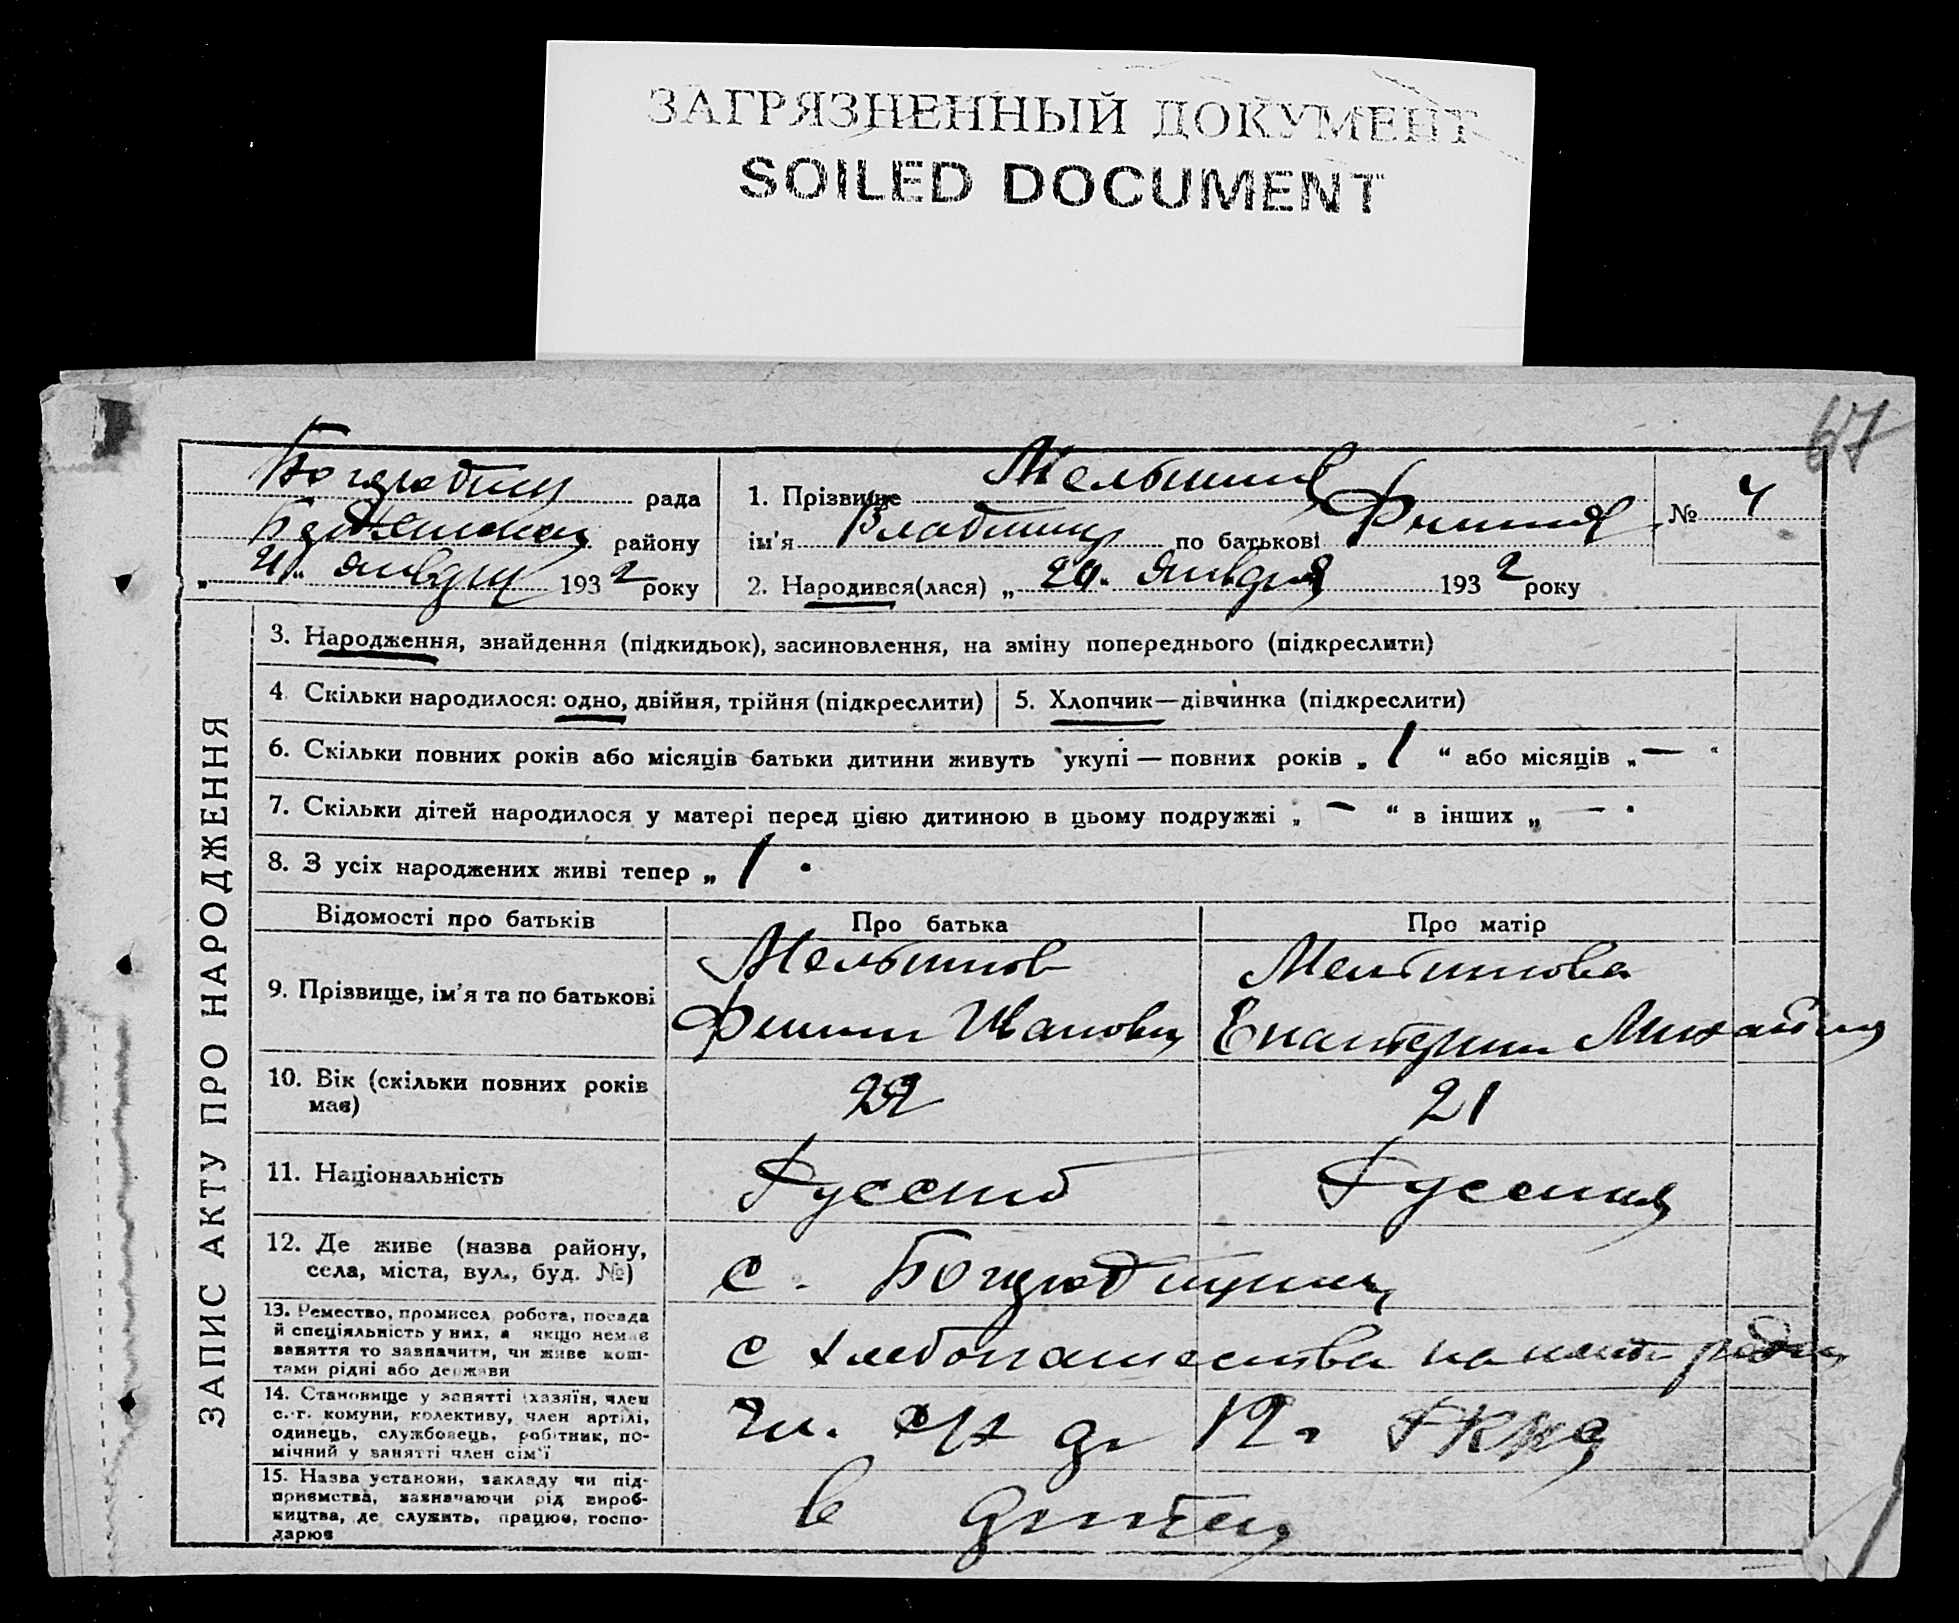 ЗАГРЯЗНЕННЫЙ ДОКУМЕНТ
SOILED DOCUMENT
67
рада
району
„ 21 " января 1932 року
1. Прізвище Мельников
ім'я Владимир по батькові
№ 4
2. Народився(лася) „ 20 " января 1932 року
ЗАПИС АКТУ ПРО НАРОДЖЕННЯ
3. Народження, знайдення (підкидьок), засиновлення, на зміну попереднього (підкреслити)
4. Скільки народилося: одно, двійня, трійня (підкреслити)
5. Хлопчик—дівчинка (підкреслити)
6. Скільки повних років або місяців батьки дитини живуть укупі — повних років „ 1 “ або місяців „ — “
7. Скільки дітей народилося у матері перед цією дитиною в цьому подружжі „ — “ в інших „ — “
8. З усіх народжених живі тепер „ 1 "
Відомості про батьків
Про батька
Про матір
9. Прізвище, ім'я та по батькові
Мельников
Иванович
Мельникова
Екатерина Михайл
10. Вік (скільки повних років
має)
22
21
11. Національність
Русский
Русская
12. Де живе (назва району,
села, міста, вул., буд. №)
с.
13. Ремество, промисел робота, посада
й спеціяльність у них, а якщо немає
заняття то зазначити, чи живе кош-
тами рідні або держави
с хлебопашества
14. Становище у занятті (хазяїн, член
с.-г. комуни, колективу, член артілі,
одинець, службовець, робітник, по-
мічний у занятті член сім'ї
15. Назва установи, закладу чи під-
приємства, зазначаючи рід вироб-
ництва, де служить, працює, госпо-
дарює
в